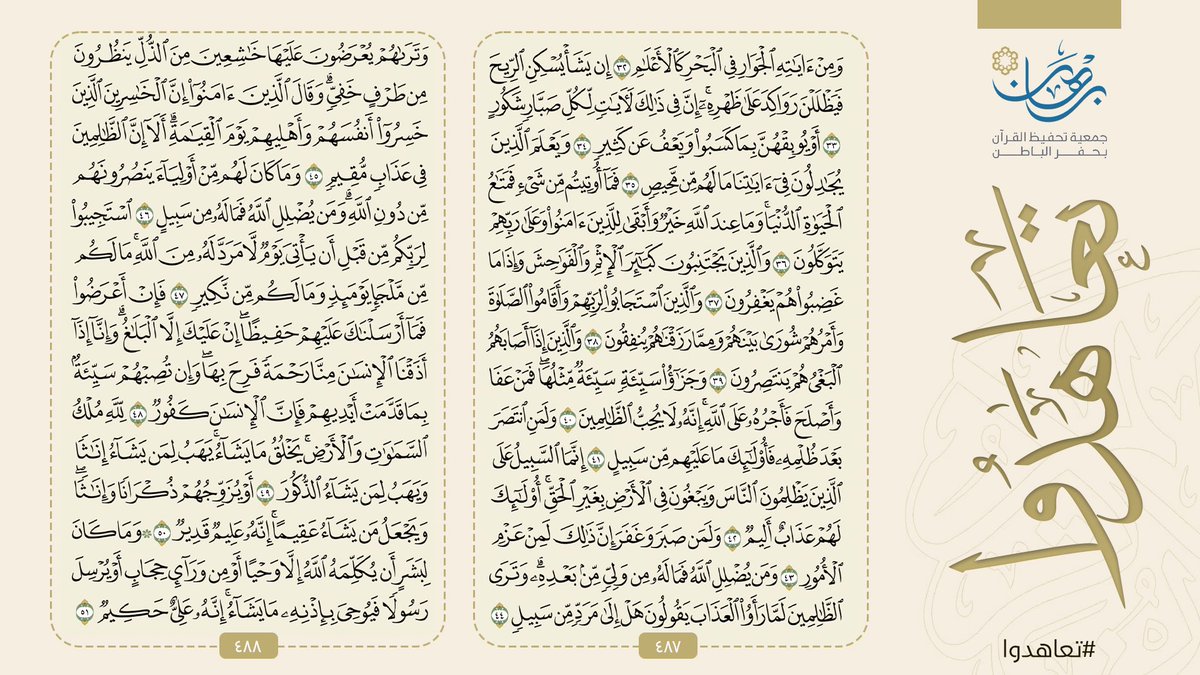 برهان
جمعية تحفيظ القرآن
بحفر الباطن
تعاهدوا
#تعاهدوا
وَمِنْ ءَايَٰتِهِ ٱلْجَوَارِ فِى ٱلْبَحْرِ كَٱلْأَعْلَٰمِ ٣٢ إِن يَشَأْ يُسْكِنِ ٱلرِّيحَ
فَيَظْلَلْنَ رَوَاكِدَ عَلَىٰ ظَهْرِهِۦٓ ۚ إِنَّ فِى ذَٰلِكَ لَءَايَٰتٍ لِّكُلِّ صَبَّارٍ شَكُورٍ
٣٣ أَوْ يُوبِقْهُنَّ بِمَا كَسَبُوا۟ وَيَعْفُ عَن كَثِيرٍ ٣٤ وَيَعْلَمَ ٱلَّذِينَ
يُجَٰدِلُونَ فِىٓ ءَايَٰتِنَا مَا لَهُم مِّن مَّحِيصٍ ٣٥ فَمَآ أُوتِيتُم مِّن شَىْءٍ فَمَتَٰعُ
ٱلْحَيَوٰةِ ٱلدُّنْيَا ۖ وَمَا عِندَ ٱللَّهِ خَيْرٌ وَأَبْقَىٰ لِلَّذِينَ ءَامَنُوا۟ وَعَلَىٰ رَبِّهِمْ
يَتَوَكَّلُونَ ٣٦ وَٱلَّذِينَ يَجْتَنِبُونَ كَبَٰٓئِرَ ٱلْإِثْمِ وَٱلْفَوَٰحِشَ وَإِذَا مَا
غَضِبُوا۟ هُمْ يَغْفِرُونَ ٣٧ وَٱلَّذِينَ ٱسْتَجَابُوا۟ لِرَبِّهِمْ وَأَقَامُوا۟ ٱلصَّلَوٰةَ
وَأَمْرُهُمْ شُورَىٰ بَيْنَهُمْ وَمِمَّا رَزَقْنَٰهُمْ يُنفِقُونَ ٣٨ وَٱلَّذِينَ إِذَآ أَصَابَهُمُ
ٱلْبَغْىُ هُمْ يَنتَصِرُونَ ٣٩ وَجَزَٰٓؤُا۟ سَيِّئَةٍ سَيِّئَةٌ مِّثْلُهَا ۖ فَمَنْ عَفَا
وَأَصْلَحَ فَأَجْرُهُۥ عَلَى ٱللَّهِ ۚ إِنَّهُۥ لَا يُحِبُّ ٱلظَّٰلِمِينَ ٤٠ وَلَمَنِ ٱنتَصَرَ
بَعْدَ ظُلْمِهِۦ فَأُو۟لَٰٓئِكَ مَا عَلَيْهِم مِّن سَبِيلٍ ٤١ إِنَّمَا ٱلسَّبِيلُ عَلَى
ٱلَّذِينَ يَظْلِمُونَ ٱلنَّاسَ وَيَبْغُونَ فِى ٱلْأَرْضِ بِغَيْرِ ٱلْحَقِّ ۚ أُو۟لَٰٓئِكَ
لَهُمْ عَذَابٌ أَلِيمٌ ٤٢ وَلَمَن صَبَرَ وَغَفَرَ إِنَّ ذَٰلِكَ لَمِنْ عَزْمِ
ٱلْأُمُورِ ٤٣ وَمَن يُضْلِلِ ٱللَّهُ فَمَا لَهُۥ مِن وَلِىٍّ مِّنۢ بَعْدِهِۦ ۗ وَتَرَى
ٱلظَّٰلِمِينَ لَمَّا رَأَوُا۟ ٱلْعَذَابَ يَقُولُونَ هَلْ إِلَىٰ مَرَدٍّ مِّن سَبِيلٍ ٤٤
٤٨٧
وَتَرَىٰهُمْ يُعْرَضُونَ عَلَيْهَا خَٰشِعِينَ مِنَ ٱلذُّلِّ يَنظُرُونَ
مِن طَرْفٍ خَفِىٍّ ۗ وَقَالَ ٱلَّذِينَ ءَامَنُوٓا۟ إِنَّ ٱلْخَٰسِرِينَ ٱلَّذِينَ
خَسِرُوٓا۟ أَنفُسَهُمْ وَأَهْلِيهِمْ يَوْمَ ٱلْقِيَٰمَةِ ۗ أَلَآ إِنَّ ٱلظَّٰلِمِينَ
فِى عَذَابٍ مُّقِيمٍ ٤٥ وَمَا كَانَ لَهُم مِّنْ أَوْلِيَآءَ يَنصُرُونَهُم
مِّن دُونِ ٱللَّهِ ۗ وَمَن يُضْلِلِ ٱللَّهُ فَمَا لَهُۥ مِن سَبِيلٍ ٤٦ ٱسْتَجِيبُوا۟
لِرَبِّكُم مِّن قَبْلِ أَن يَأْتِىَ يَوْمٌ لَّا مَرَدَّ لَهُۥ مِنَ ٱللَّهِ ۚ مَا لَكُم
مِّن مَّلْجَإٍ يَوْمَئِذٍ وَمَا لَكُم مِّن نَّكِيرٍ ٤٧ فَإِنْ أَعْرَضُوا۟
فَمَآ أَرْسَلْنَٰكَ عَلَيْهِمْ حَفِيظًا ۖ إِنْ عَلَيْكَ إِلَّا ٱلْبَلَٰغُ ۗ وَإِنَّآ إِذَآ
أَذَقْنَا ٱلْإِنسَٰنَ مِنَّا رَحْمَةً فَرِحَ بِهَا ۖ وَإِن تُصِبْهُمْ سَيِّئَةٌۢ
بِمَا قَدَّمَتْ أَيْدِيهِمْ فَإِنَّ ٱلْإِنسَٰنَ كَفُورٌ ٤٨ لِّلَّهِ مُلْكُ
ٱلسَّمَٰوَٰتِ وَٱلْأَرْضِ ۚ يَخْلُقُ مَا يَشَآءُ ۚ يَهَبُ لِمَن يَشَآءُ إِنَٰثًا
وَيَهَبُ لِمَن يَشَآءُ ٱلذُّكُورَ ٤٩ أَوْ يُزَوِّجُهُمْ ذُكْرَانًا وَإِنَٰثًا ۖ
وَيَجْعَلُ مَن يَشَآءُ عَقِيمًا ۚ إِنَّهُۥ عَلِيمٌ قَدِيرٌ ٥٠ ۞ وَمَا كَانَ
لِبَشَرٍ أَن يُكَلِّمَهُ ٱللَّهُ إِلَّا وَحْيًا أَوْ مِن وَرَآئِ حِجَابٍ أَوْ يُرْسِلَ
رَسُولًا فَيُوحِىَ بِإِذْنِهِۦ مَا يَشَآءُ ۚ إِنَّهُۥ عَلِىٌّ حَكِيمٌ ٥١
٤٨٨